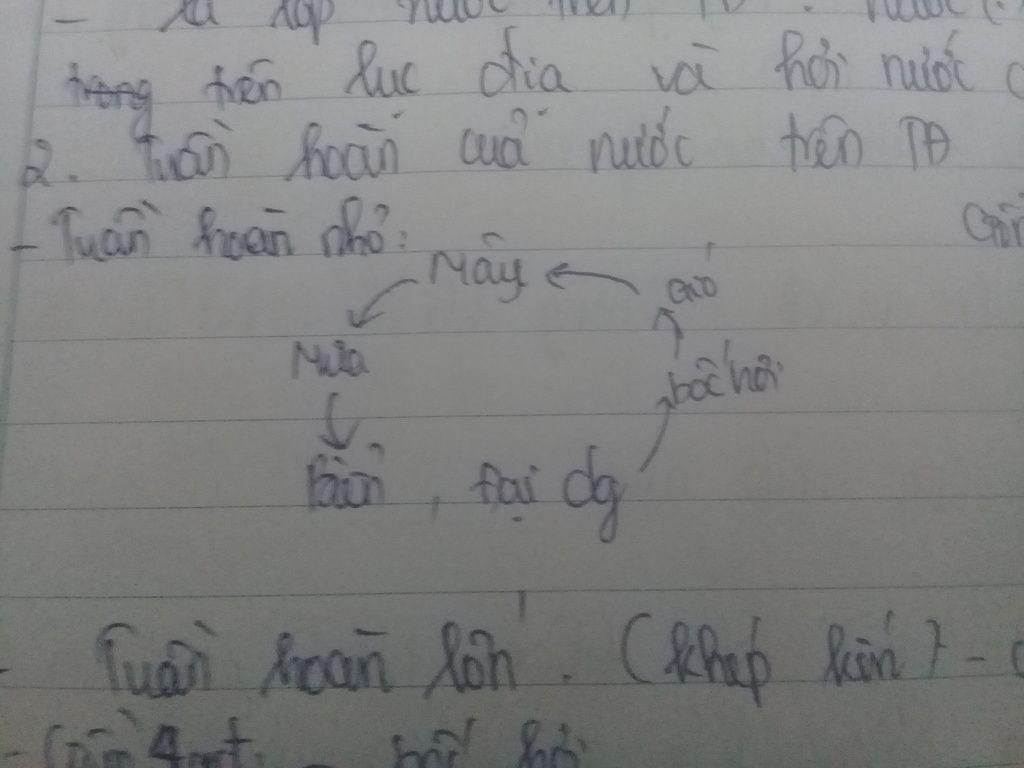 - là lớp nước trên TĐ : nước (
trong trên lục địa và hơi nước
2. Tuần hoàn của nước trên TĐ
- Tuần hoàn nhỏ:
Mây
gió
Mưa
bốc hơi
Biển, Đại dg
Tuần hoàn lớn. (khép kín) -
bốc hơi